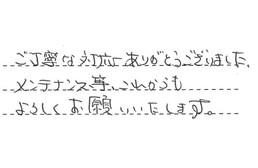 ご丁寧な対応ありがとうございました。
メンテナンス等、これからも
よろしくお願いいたします。